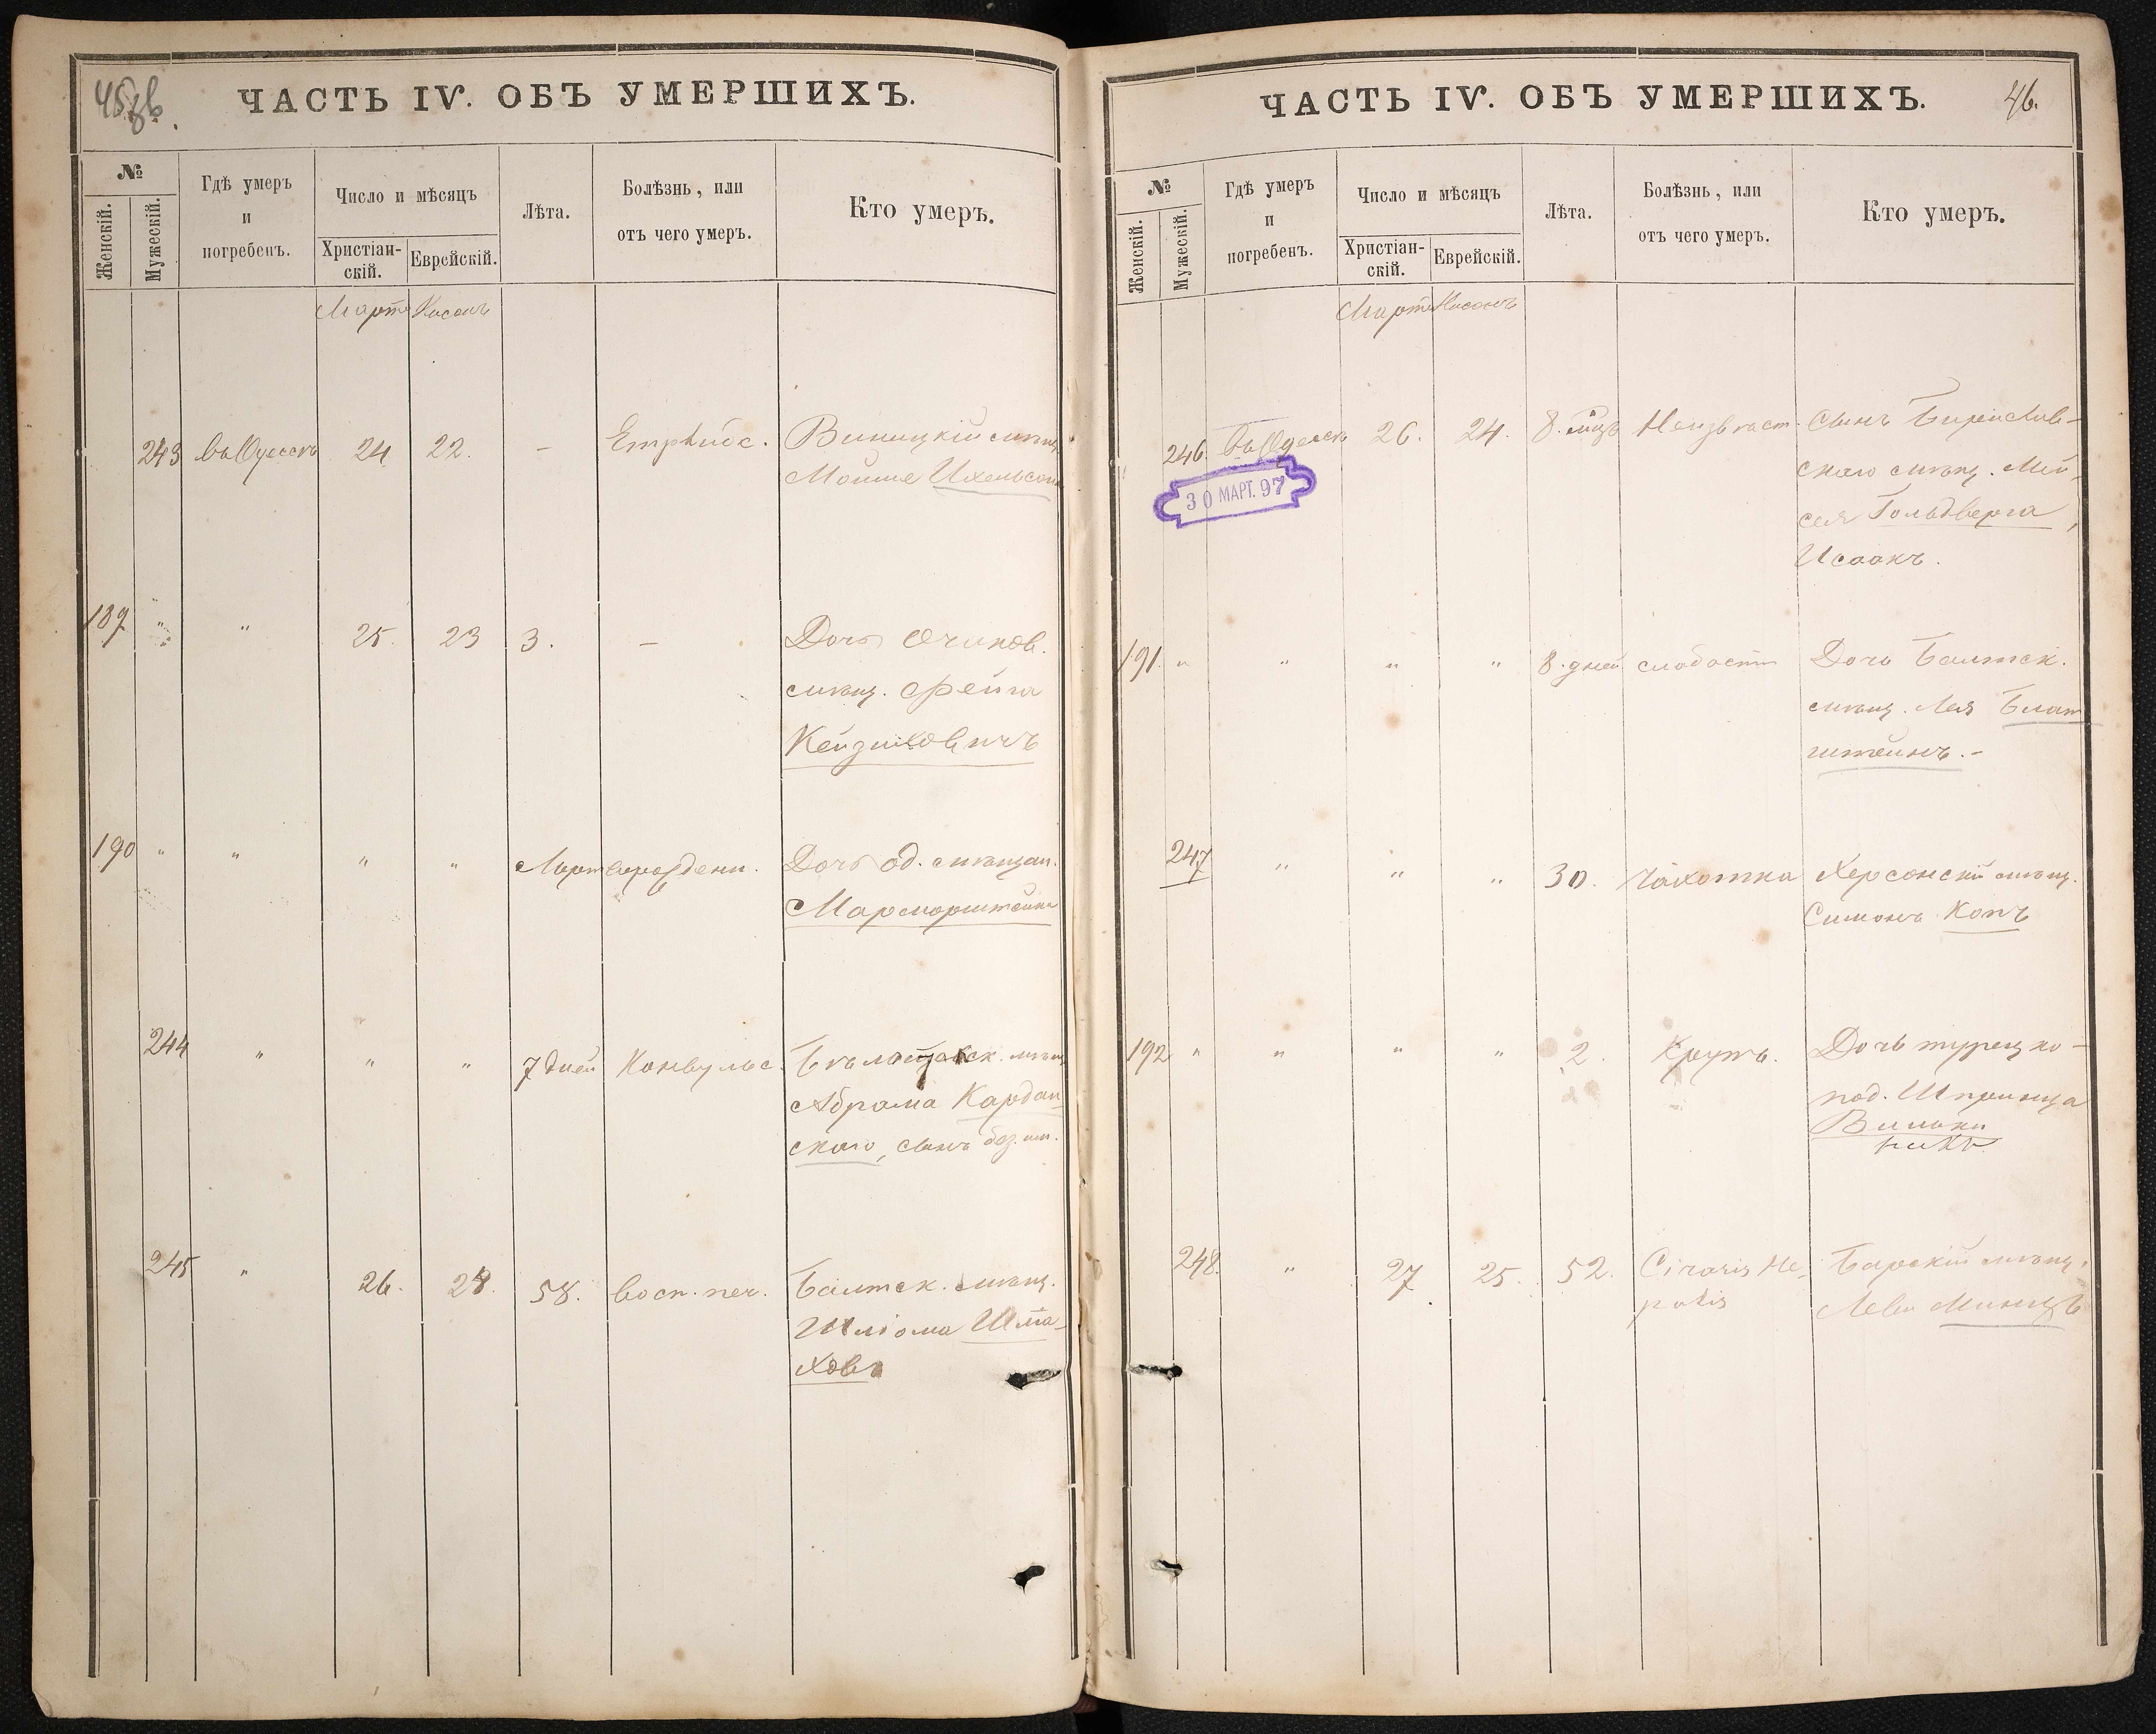 45об.
ЧАСТЬ IV. ОБЪ УМЕРШИХЪ.
№
Женскій.
Мужескій.
Гдѣ умеръ
и
погребенъ.
Число и мѣсяцъ
Христіан-
скій.
Еврейскій.
Лѣта.
Болѣзнь, или
отъ чего умеръ.
Кто умеръ.
Мартъ Нисанъ
243 въ Одессѣ 24 22. - Emphис. Виницкій мѣщ.
Мойше Ихельсонъ
189 " " 25. 23 3. — Дочь Очаков.
мѣщ. Фейга
190 " " " " Мертворожден. Дочь од. мѣщан.
Марморштейна
244 " " " 7 дней Конвульс.
Абрама Кардан-
скаго, сынъ без. им.
245 " 26. 24. 58. восп. леч. Балтск. мѣщ.
Шліома Шма-
ховъ
ЧАСТЬ IV. ОБЪ УМЕРШИХЪ.
46.
№
Женскій.
Мужескій.
Гдѣ умеръ
и
погребенъ.
Число и мѣсяцъ
Христіан-
скій.
Еврейскій.
Лѣта.
Болѣзнь, или
отъ чего умеръ.
Кто умеръ.
Мартъ Нисанъ
246. въ Одессѣ 26. 24. 8. мѣц Неизвѣст. Сынъ
скаго мѣщ. Мой-
сея Гольдберга,
Исаакъ.
30 МАРТ. 97
191. " " " " 8. дней слабости Дочь Балтск.
мѣщ. Лея Блат
штейнъ. -
247 " " " 30. Чахотка Херсонскій мѣщ.
Симонъ Копъ
192 " " " " 2. Крупъ. Дочь турецко-
под. Шпринца
248. " 27 25. 52. Cirrosis He-
patis
Барскій мѣщ.
Лейб Минцъ